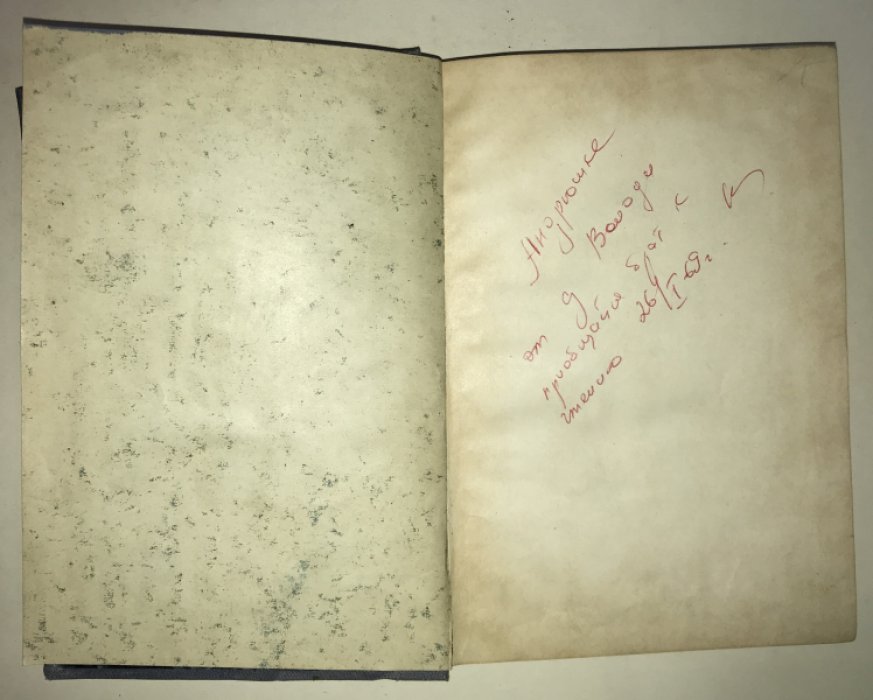 Андрюшке
от д Володи
приобщайся брат к
чтению 26/I 69 г.